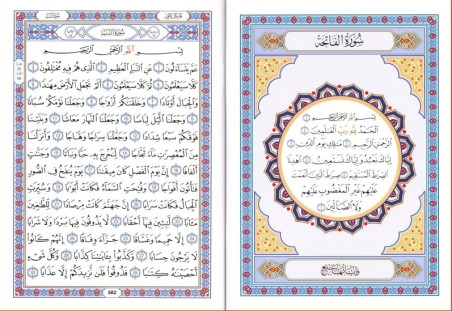 سُورَةُ الْفَاتِحَةِ
بِسْمِ اللَّهِ الرَّحْمَٰنِ الرَّحِيمِ
الْحَمْدُ لِلَّهِ رَبِّ الْعَالَمِينَ
الرَّحْمَٰنِ الرَّحِيمِ مَالِكِ يَوْمِ الدِّينِ
إِيَّاكَ نَعْبُدُ وَإِيَّاكَ نَسْتَعِينُ اهْدِنَا
الصِّرَاطَ الْمُسْتَقِيمَ صِرَاطَ الَّذِينَ أَنْعَمْتَ
عَلَيْهِمْ غَيْرِ الْمَغْضُوبِ عَلَيْهِمْ
وَلَا الضَّالِّينَ
سُورَةُ النَّبَإِ
بِسْمِ اللَّهِ الرَّحْمَٰنِ الرَّحِيمِ
عَمَّ يَتَسَاءَلُونَ عَنِ النَّبَإِ الْعَظِيمِ الَّذِي هُمْ فِيهِ مُخْتَلِفُونَ
كَلَّا سَيَعْلَمُونَ ثُمَّ كَلَّا سَيَعْلَمُونَ أَلَمْ نَجْعَلِ الْأَرْضَ مِهَادًا
وَالْجِبَالَ أَوْتَادًا وَخَلَقْنَاكُمْ أَزْوَاجًا وَجَعَلْنَا نَوْمَكُمْ سُبَاتًا
وَجَعَلْنَا اللَّيْلَ لِبَاسًا وَجَعَلْنَا النَّهَارَ مَعَاشًا وَبَنَيْنَا
فَوْقَكُمْ سَبْعًا شِدَادًا وَجَعَلْنَا سِرَاجًا وَهَّاجًا وَأَنزَلْنَا
مِنَ الْمُعْصِرَاتِ مَاءً ثَجَّاجًا لِّنُخْرِجَ بِهِ حَبًّا وَنَبَاتًا وَجَنَّاتٍ
أَلْفَافًا إِنَّ يَوْمَ الْفَصْلِ كَانَ مِيقَاتًا يَوْمَ يُنفَخُ فِي الصُّورِ
فَتَأْتُونَ أَفْوَاجًا وَفُتِحَتِ السَّمَاءُ فَكَانَتْ أَبْوَابًا وَسُيِّرَتِ
الْجِبَالُ فَكَانَتْ سَرَابًا إِنَّ جَهَنَّمَ كَانَتْ مِرْصَادًا لِّلطَّاغِينَ
مَآبًا لَّابِثِينَ فِيهَا أَحْقَابًا لَّا يَذُوقُونَ فِيهَا بَرْدًا وَلَا شَرَابًا
إِلَّا حَمِيمًا وَغَسَّاقًا جَزَاءً وِفَاقًا إِنَّهُمْ كَانُوا
لَا يَرْجُونَ حِسَابًا وَكَذَّبُوا بِآيَاتِنَا كِذَّابًا وَكُلَّ شَيْءٍ
أَحْصَيْنَاهُ كِتَابًا فَذُوقُوا فَلَن نَّزِيدَكُمْ إِلَّا عَذَابًا
582